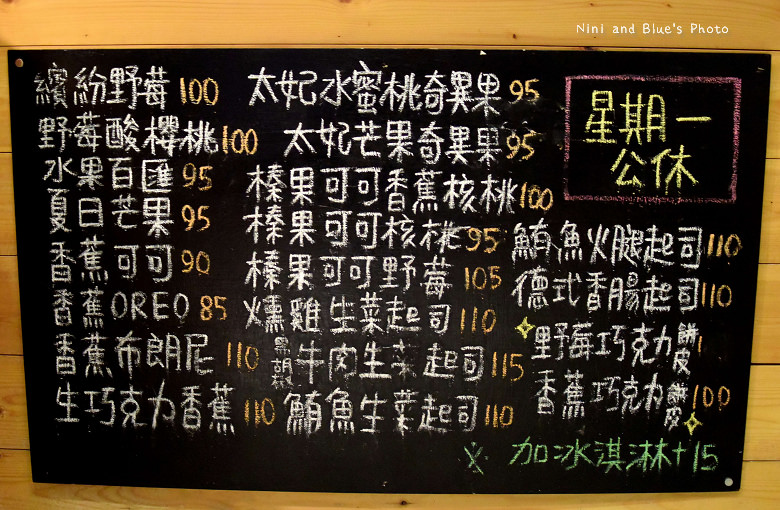 Nini and Blue's Photo
繽紛野莓 100
野莓酸櫻桃 100
水果百匯 95
夏日芒果 95
香蕉可可 90
香蕉OREO 85
香蕉布朗尼 110
生巧克力香蕉 110
太妃水蜜桃奇異果 95
太妃芒果奇異果 95
榛果可可香蕉核桃 100
榛果可可核桃 95
榛果可可野莓 105
燻雞生菜起司 110
黑胡椒牛肉生菜起司 115
鮪魚生菜起司 110
星期一
公休
鮪魚火腿起司 110
德式香腸起司 110
野莓巧克力餅皮
香蕉巧克力餅皮 100
※ 加冰淇淋+15